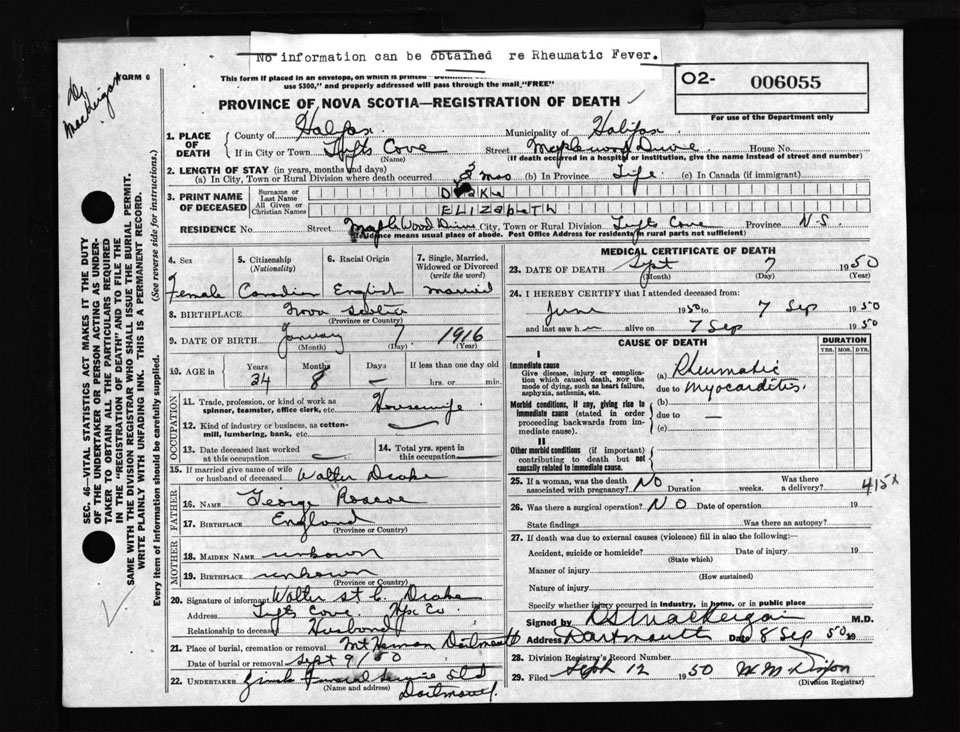 No information can be obtained re Rheumatic Fever.
FORM 6
This form if placed in an envelope, on which is printed
use $300," and properly addressed will pass through the mail "FREE"
O2- 006055
For use of the Department only
PROVINCE OF NOVA SCOTIA—REGISTRATION OF DEATH
1. PLACE OF DEATH
County of Halifax Municipality of Halifax
If in City or Town Tufts Cove (Name) Street Maplewood Drive House No.
(If death occurred in a hospital or institution, give the name instead of street and number)
2. LENGTH OF STAY (in years, months and days)
(a) In City, Town or Rural Division where death occurred mos (b) In Province Life (c) In Canada (if immigrant)
3. PRINT NAME OF DECEASED
Surname or Last Name Drake
All Given or Christian Names ELIZABETH
RESIDENCE No. Street MapleWood Drive City, Town or Rural Division Tufts Cove Province N-S
(Residence means usual place of abode. Post Office Address for residents in rural parts not sufficient)
4. Sex Female
5. Citizenship (Nationality) Canadian
6. Racial Origin English
7. Single, Married, Widowed or Divorced (write the word) married
8. BIRTHPLACE Nova Scotia
(Province or Country)
9. DATE OF BIRTH January 7 1916
(Month) (Day) (Year)
10. AGE in Years 34 Months 8 Days — If less than one day old hrs. or min.
OCCUPATION
11. Trade, profession, or kind of work as spinner, teamster, office clerk, etc. Housewife
12. Kind of industry or business, as cotton-mill, lumbering, bank, etc.
13. Date deceased last worked at this occupation
14. Total yrs. spent in this occupation
15. If married give name of wife or husband of deceased Walter Drake
FATHER
16. Name George
17. Birthplace England
(Province or Country)
MOTHER
18. Maiden Name unknown
19. Birthplace unknown
(Province or Country)
20. Signature of informant Walter St C. Drake
Address Tufts Cove Hfx Co
Relationship to deceased Husband
21. Place of burial, cremation or removal Mt Hermon Dartmouth
Date of burial or removal Sept 9/50
22. Undertaker Funeral Service Ltd
(Name and address) Dartmouth
MEDICAL CERTIFICATE OF DEATH
23. DATE OF DEATH Sept 7 1950
(Month) (Day) (Year)
24. I HEREBY CERTIFY that I attended deceased from:
June 1950 to 7 Sep 1950
and last saw h alive on 7 Sep 1950
CAUSE OF DEATH
DURATION
YRS. MOS. DYS.
I
Immediate cause
Give disease, injury or complication which caused death, NOT the mode of dying, such as heart failure, asphyxia, asthenia, etc.
(a) Rheumatic
due to Myocarditis.
Morbid conditions, if any, giving rise to immediate cause (stated in order proceeding backwards from immediate cause).
(b)
due to —
(c)
II
Other morbid conditions (if important) contributing to death but not causally related to immediate cause.
25. If a woman, was the death associated with pregnancy? NO Duration weeks. Was there a delivery?
26. Was there a surgical operation? NO Date of operation 19
State findings Was there an autopsy?
27. If death was due to external causes (violence) fill in also the following:—
Accident, suicide or homicide? Date of injury 19
(State which)
Manner of injury
(How sustained)
Nature of injury
Specify whether injury occurred in industry, in home, or in public place
Signed by M.D.
Address Dartmouth Date 8 Sep 50 19
28. Division Registrar's Record Number
29. Filed Sept 12 1950
(Division Registrar)
SEC. 46—VITAL STATISTICS ACT MAKES IT THE DUTY
OF THE UNDERTAKER OR PERSON ACTING AS UNDER-
TAKER TO OBTAIN ALL THE PARTICULARS REQUIRED
IN THE "REGISTRATION OF DEATH" AND TO FILE THE
SAME WITH THE DIVISION REGISTRAR WHO SHALL ISSUE THE BURIAL PERMIT.
WRITE PLAINLY WITH UNFADING INK. THIS IS A PERMANENT RECORD.
Every item of information should be carefully supplied. (See reverse side for instructions.)